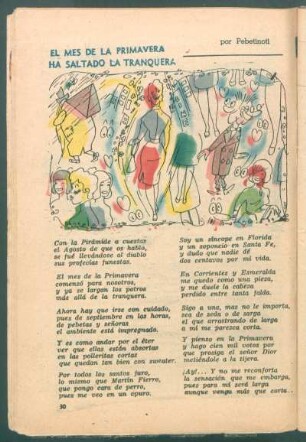 por Pebetinoti
EL MES DE LA PRIMAVERA
HA SALTADO LA TRANQUERA
Con la Pirámide a cuestas
el Agosto de que os hablo,
se fué llevándose al diablo
sus profecías funestas.
El mes de la Primavera
comenzó para nosotros,
y ya se largan los potros
más allá de la tranquera.
Ahora hay que irse con cuidado,
pues de septiembre en las horas,
de pebetas y señoras
el ambiente está impregnado.
Y es como andar por el éter
ver que ellas están absortas
en las polleritas cortas
que quedan tan bien con sweater.
Por todos los santos juro,
lo mismo que Martín Fierro,
que pongo cara de perro,
pues me veo en un apuro.
Soy un síncope en Florida
y un soponcio en Santa Fe,
y dudo que nadie dé
dos centavos por mi vida.
En Corrientes y Esmeralda
me quedo como una pieza,
y me duele la cabeza
perdido entre tanta falda.
Sigo a una, mas no le importa
sea de seda o de sarga
el que arrastrando de larga
a mí me parezca corta.
Y pienso en la Primavera
y hago cien mil votos por
que prosiga el señor Dior
metiéndole a la tijera.
¡Ay!... Y no me reconforta
la sensación que me embarga,
pues para mí será larga
aunque venga más que corta...
30